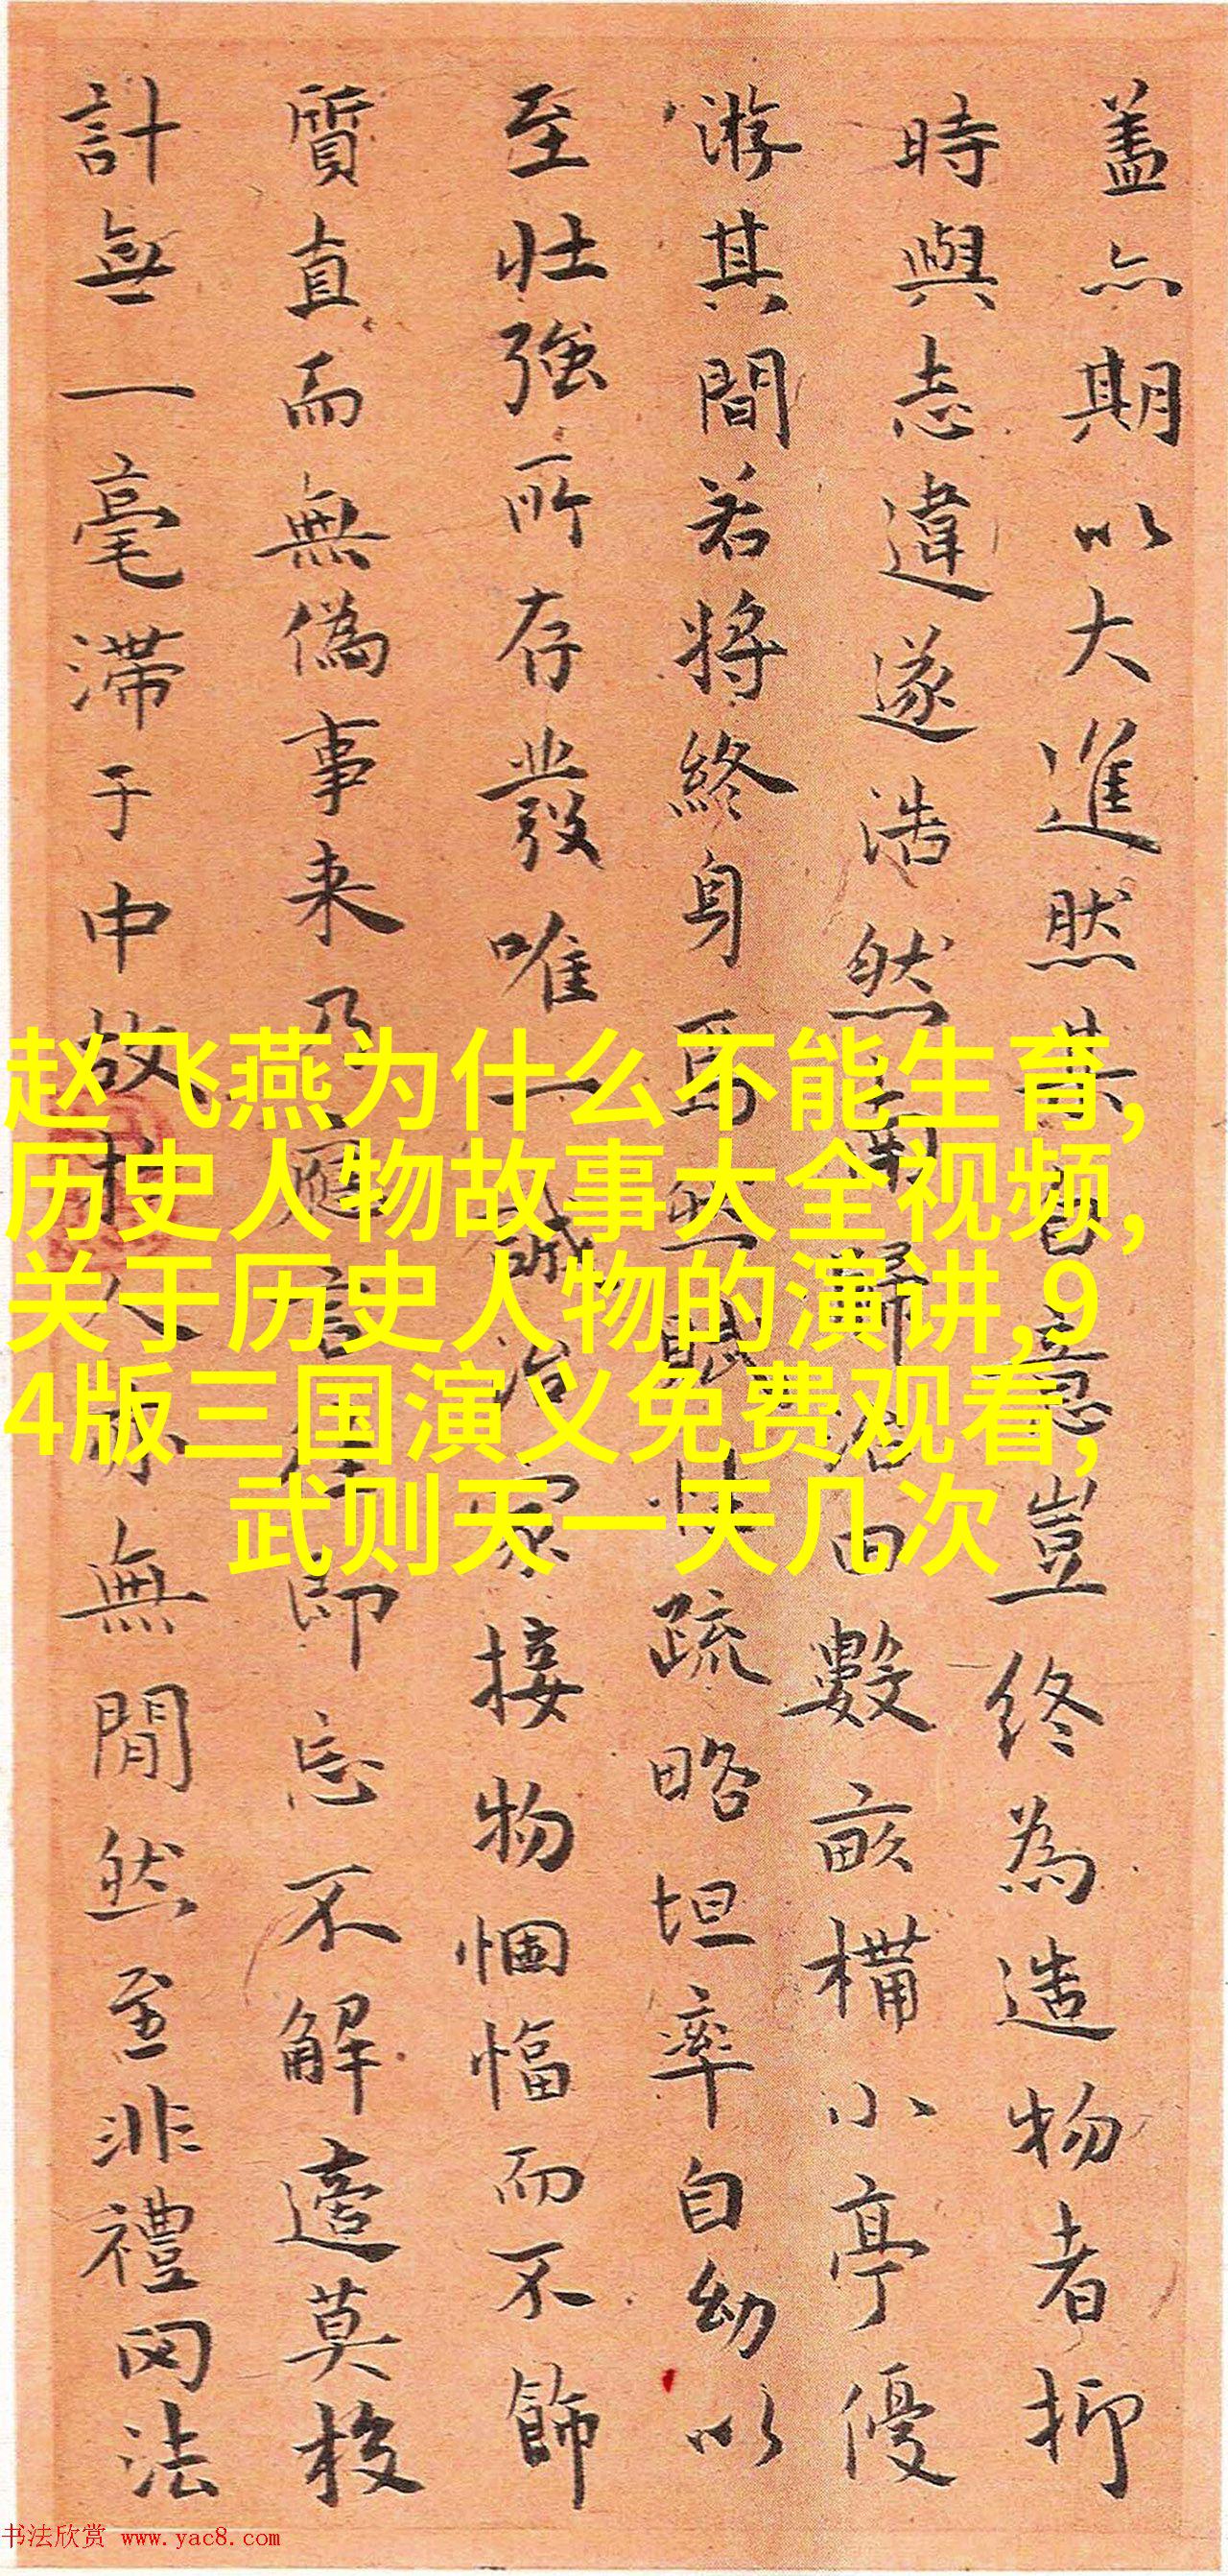 盖亦期以大進然其意豈終為造物者抑
時與志違遂浩然南歸治田數畝構小亭優
游其間若將終身焉然賦性疏略坦率自幼以
至壮強所存發唯一誠治家接物悃愊而不飾
質直而無偽事来乃應言即忘不解莫校
計無一毫滞于中故於人亦無間然至非禮罔法
赵飞燕为什么不能生育,
历史人物故事大全视频,
关于历史人物的演讲,9
4版三国演义免费观看,
武则天一天几次
书法欣赏 www.yac8.com